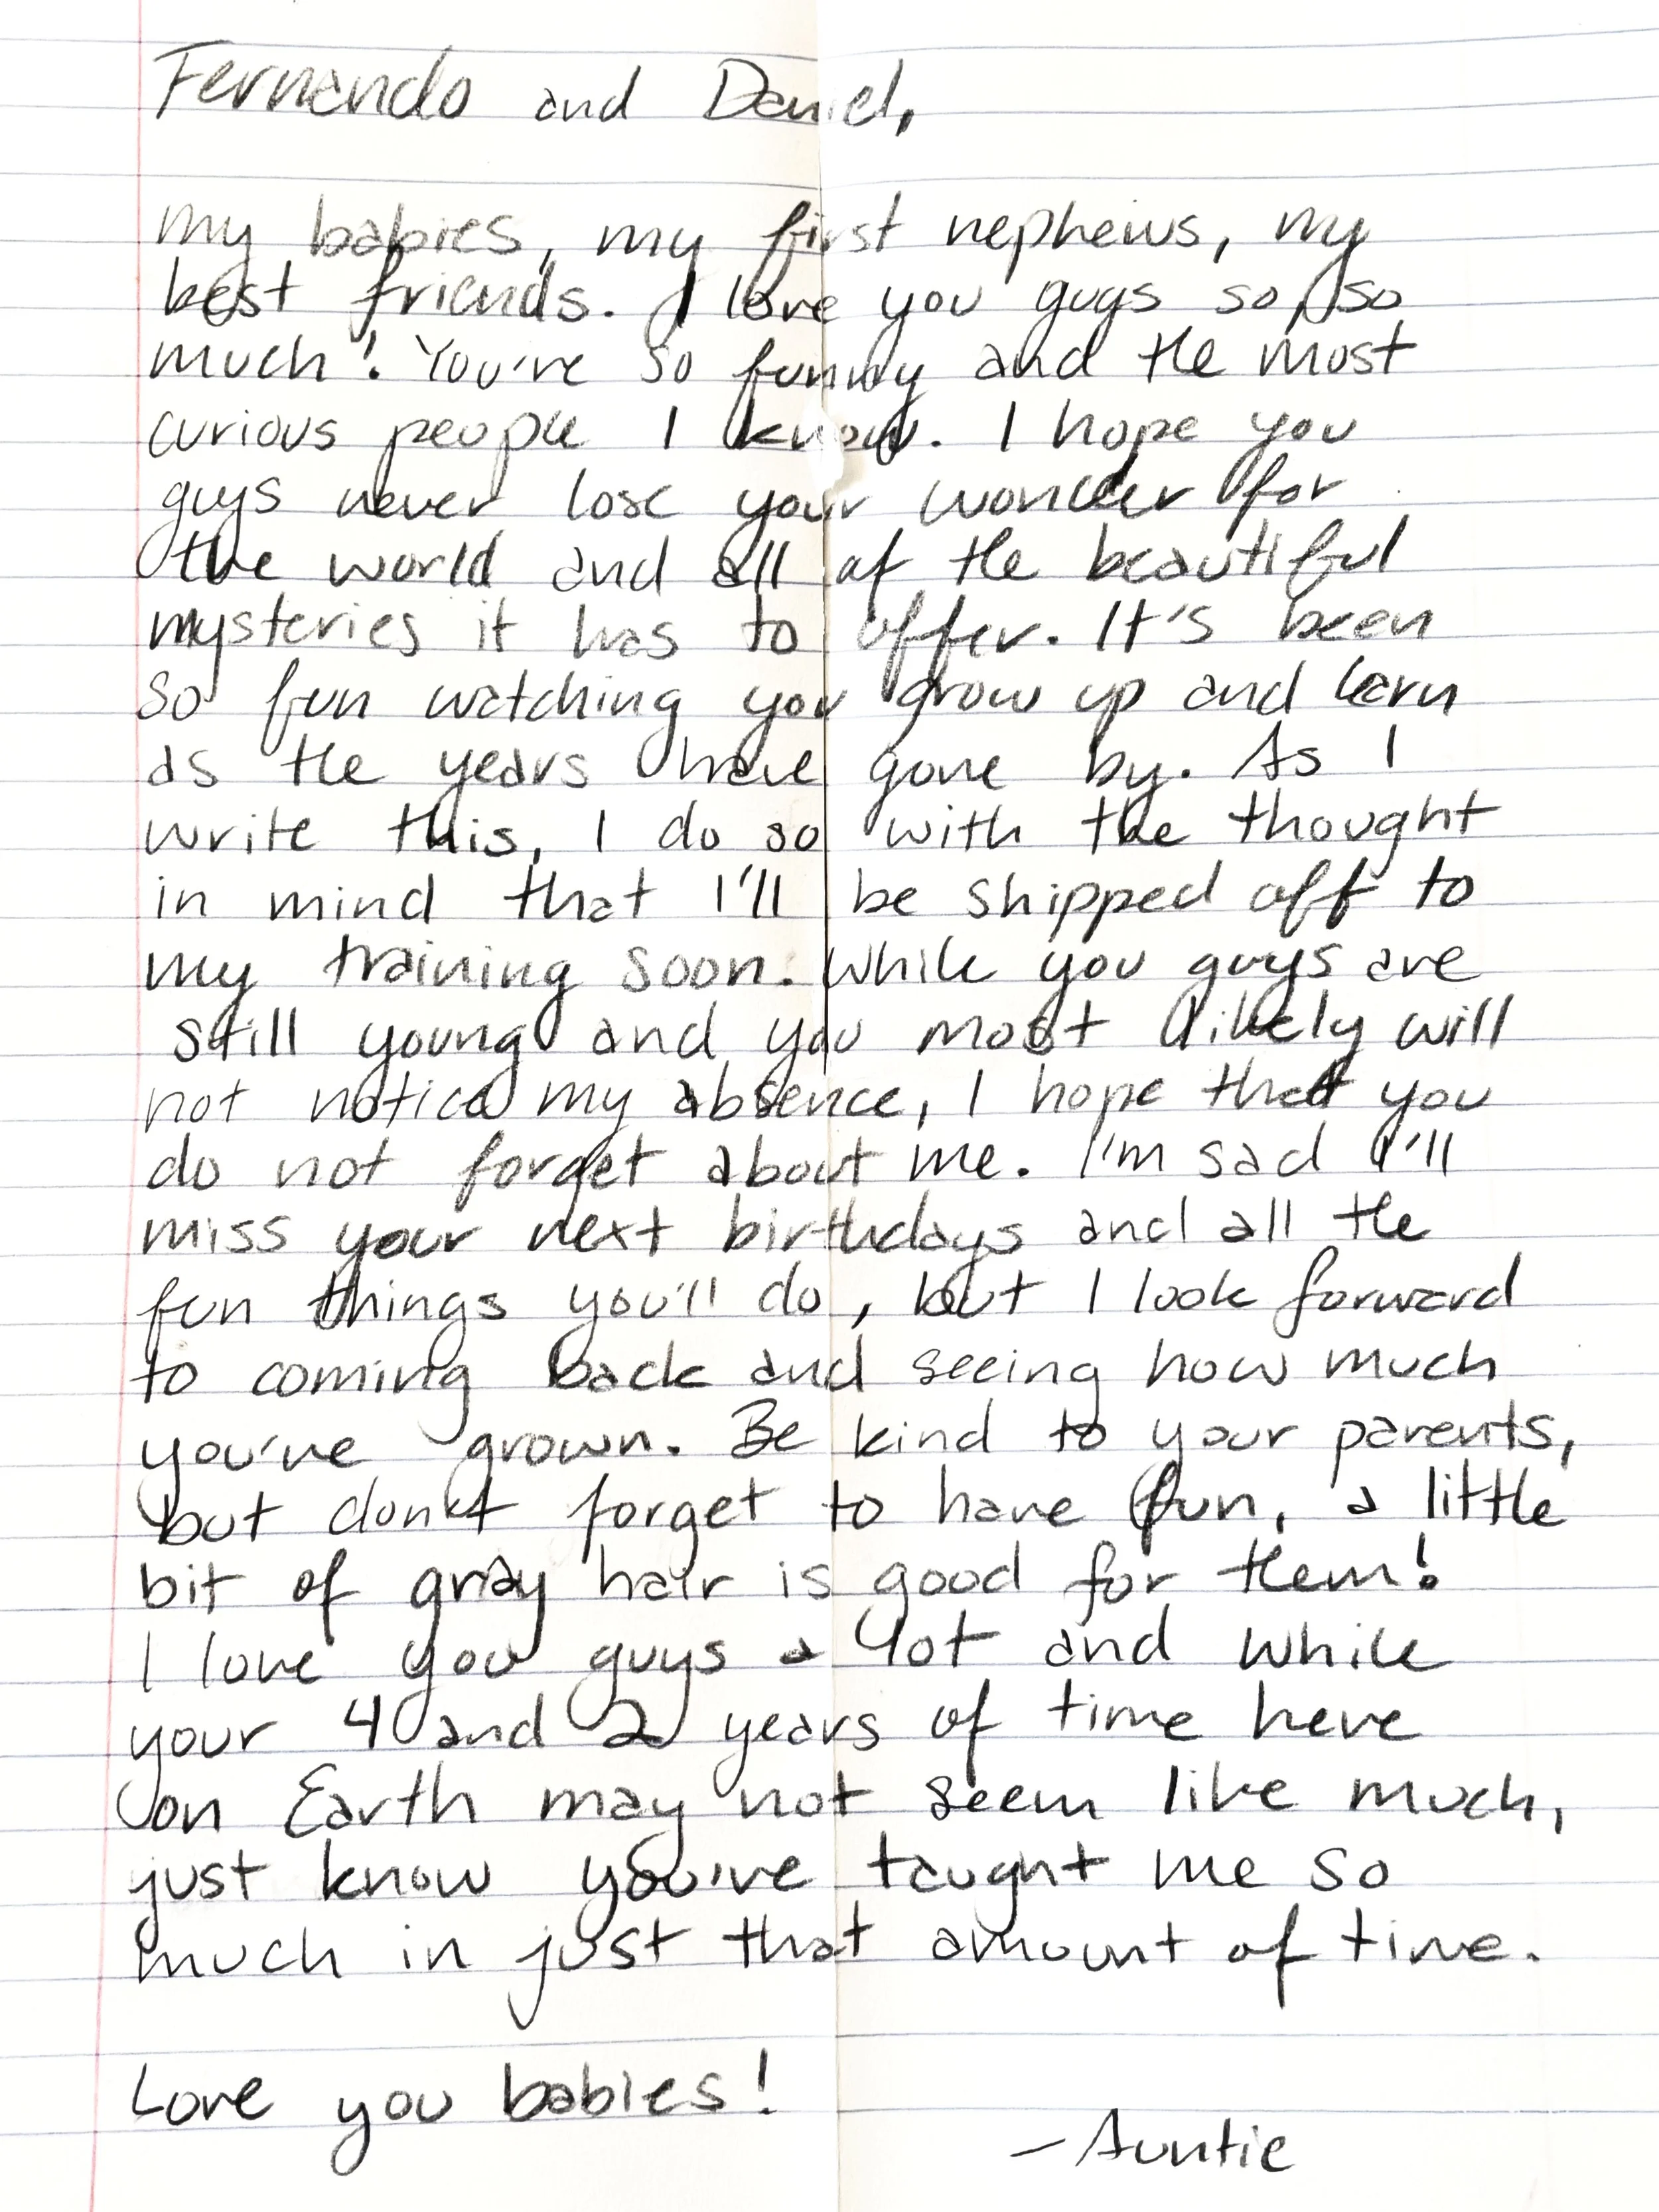 Fernando and Daniel,
my babies, my first nephews, my
best friends. I love you guys so, so
much! You're so funny and the most
curious people I know. I hope you
guys never lose your wonder for
the world and all of the beautiful
mysteries it has to offer. It's been
so fun watching you grow up and learn
as the years have gone by. As I
write this, I do so with the thought
in mind that I'll be shipped off to
my training soon. While you guys are
still young and you most likely will
not notice my absence, I hope that you
do not forget about me. I'm sad I'll
miss your next birthdays and all the
fun things you'll do, but I look forward
to coming back and seeing how much
you've grown. Be kind to your parents,
but don't forget to have fun, a little
bit of gray hair is good for them!
I love you guys a lot and while
your 4 and 2 years of time here
on Earth may not seem like much,
just know you've taught me so
much in just that amount of time.
Love you babies!
- Auntie